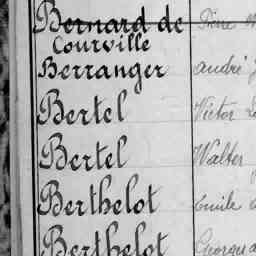 Bernard de Pierre
Courville
Berranger andré
Bertel Victor
Bertel Walter
Berthelot Emile
Berthelot Georges